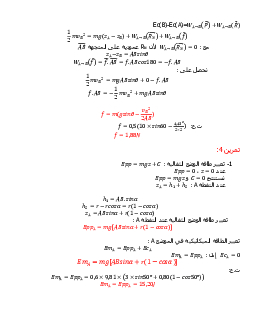 Ec(B)-Ec(A)=W_{A→B}(P⃗) + W_{A→B}(R⃗)
1/2 mv_B² = mg(z_A − z_B) + W_{A→B}(R⃗_N) + W_{A→B}(f⃗)
مع : W_{A→B}(R⃗_N) = 0 لأن R_N عمودية على المتجهة AB⃗
z_A − z_B = ABsinα
W_{A→B}(f⃗) = f⃗. AB⃗ = f. ABcos180 = −f. AB
نحصل على :
1/2 mv_B² = mgABsinα + 0 − f. AB
f. AB = −1/2 mv_B² + mgABsinα
f = m(gsinα − v_B²/2AB)
ت.ع:
f = 1,88N
تمرين 4:
1- تعبير طاقة الوضع الثقالية : Epp = mgz + C
عند z = 0 ، Epp = 0
نستنتج C = 0 و Epp = mgz
عند النقطة A : z_A = h_1 + h_2
h_1 = AB.sinα
h_2 = r − rcosα = r(1 − cosα)
z_A = ABsinα + r(1 − cosα)
تعبير طاقة الوضع الثقالية عند النقطة A :
Epp_A = mg[ABsinα + r(1 − cosα)]
تعبير الطاقة الميكانيكية في الموضع A :
Em_A = Epp_A + Ec_A
Ec_A = 0 إذن : Em_A = Epp_A
Em_A = mg[ABsinα + r(1 − cosα)]
ت.ع:
Em_A = Epp_A = 0,6 × 9,81 × (3 × sin50° + 0,80(1 − cos50°))
Em_A = Epp_A = 15,20J